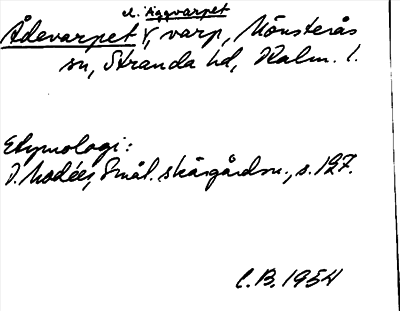 el. Äggvarpet
Ådevarpet, varp, Mönsterås
sn, Stranda hd, Kalm. l.
Etymologi:
I. Modéer, Smål. skärgårdsn., s. 127.
C.B. 1954